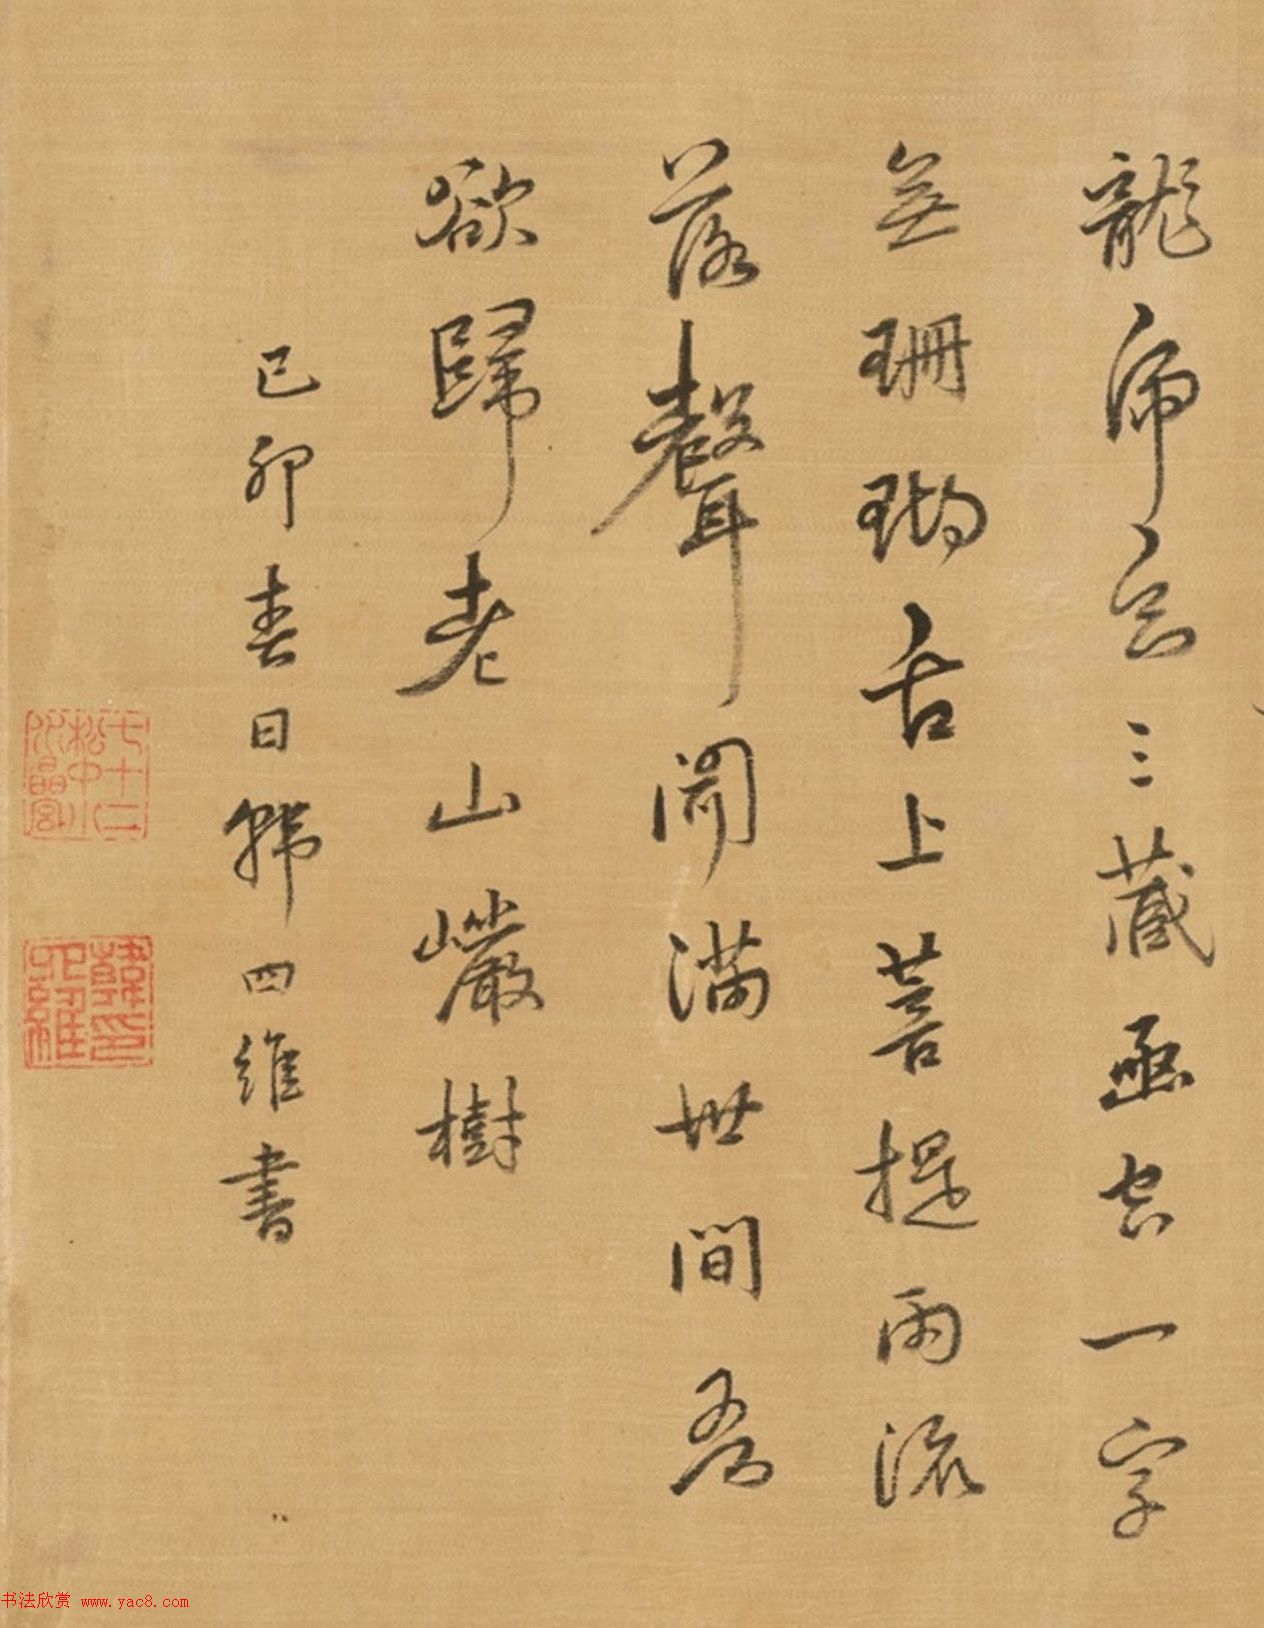 龍三藏函空一字
無珊瑚舌上菩提雨流
落聲聞滿世間吾
欲歸老山巖樹
己卯春日韓四維書
七十二松中小水晶宮
韓四維印
书法欣赏 www.yac8.com